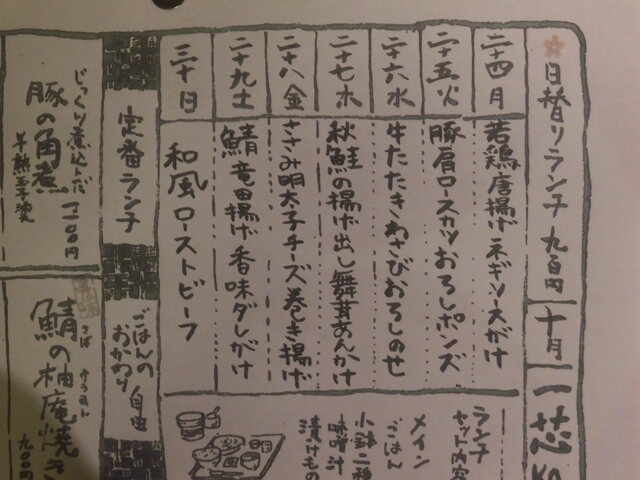 日替りランチ 九百円
十月
一芯
二十四 月
若鶏唐揚げネギソースがけ
二十五 火
豚肩ロースカツおろしポンズ
二十六 水
牛たたきわさびおろしのせ
二十七 木
秋鮭の揚げ出し舞茸あんかけ
二十八 金
ささみ明太子チーズ巻き揚げ
二十九 土
鯖竜田揚げ香味ダレがけ
三十 日
和風ローストビーフ
ランチ
セット内容
メイン
ごはん
小鉢二種
味噌汁
漬けもの
定番ランチ
ごはんの
おかわり
自由
じっくり煮込んだ
豚の角煮
半熟玉子焼
一二〇〇円
鯖の柚庵焼き
さば ゆうあん
九〇〇円